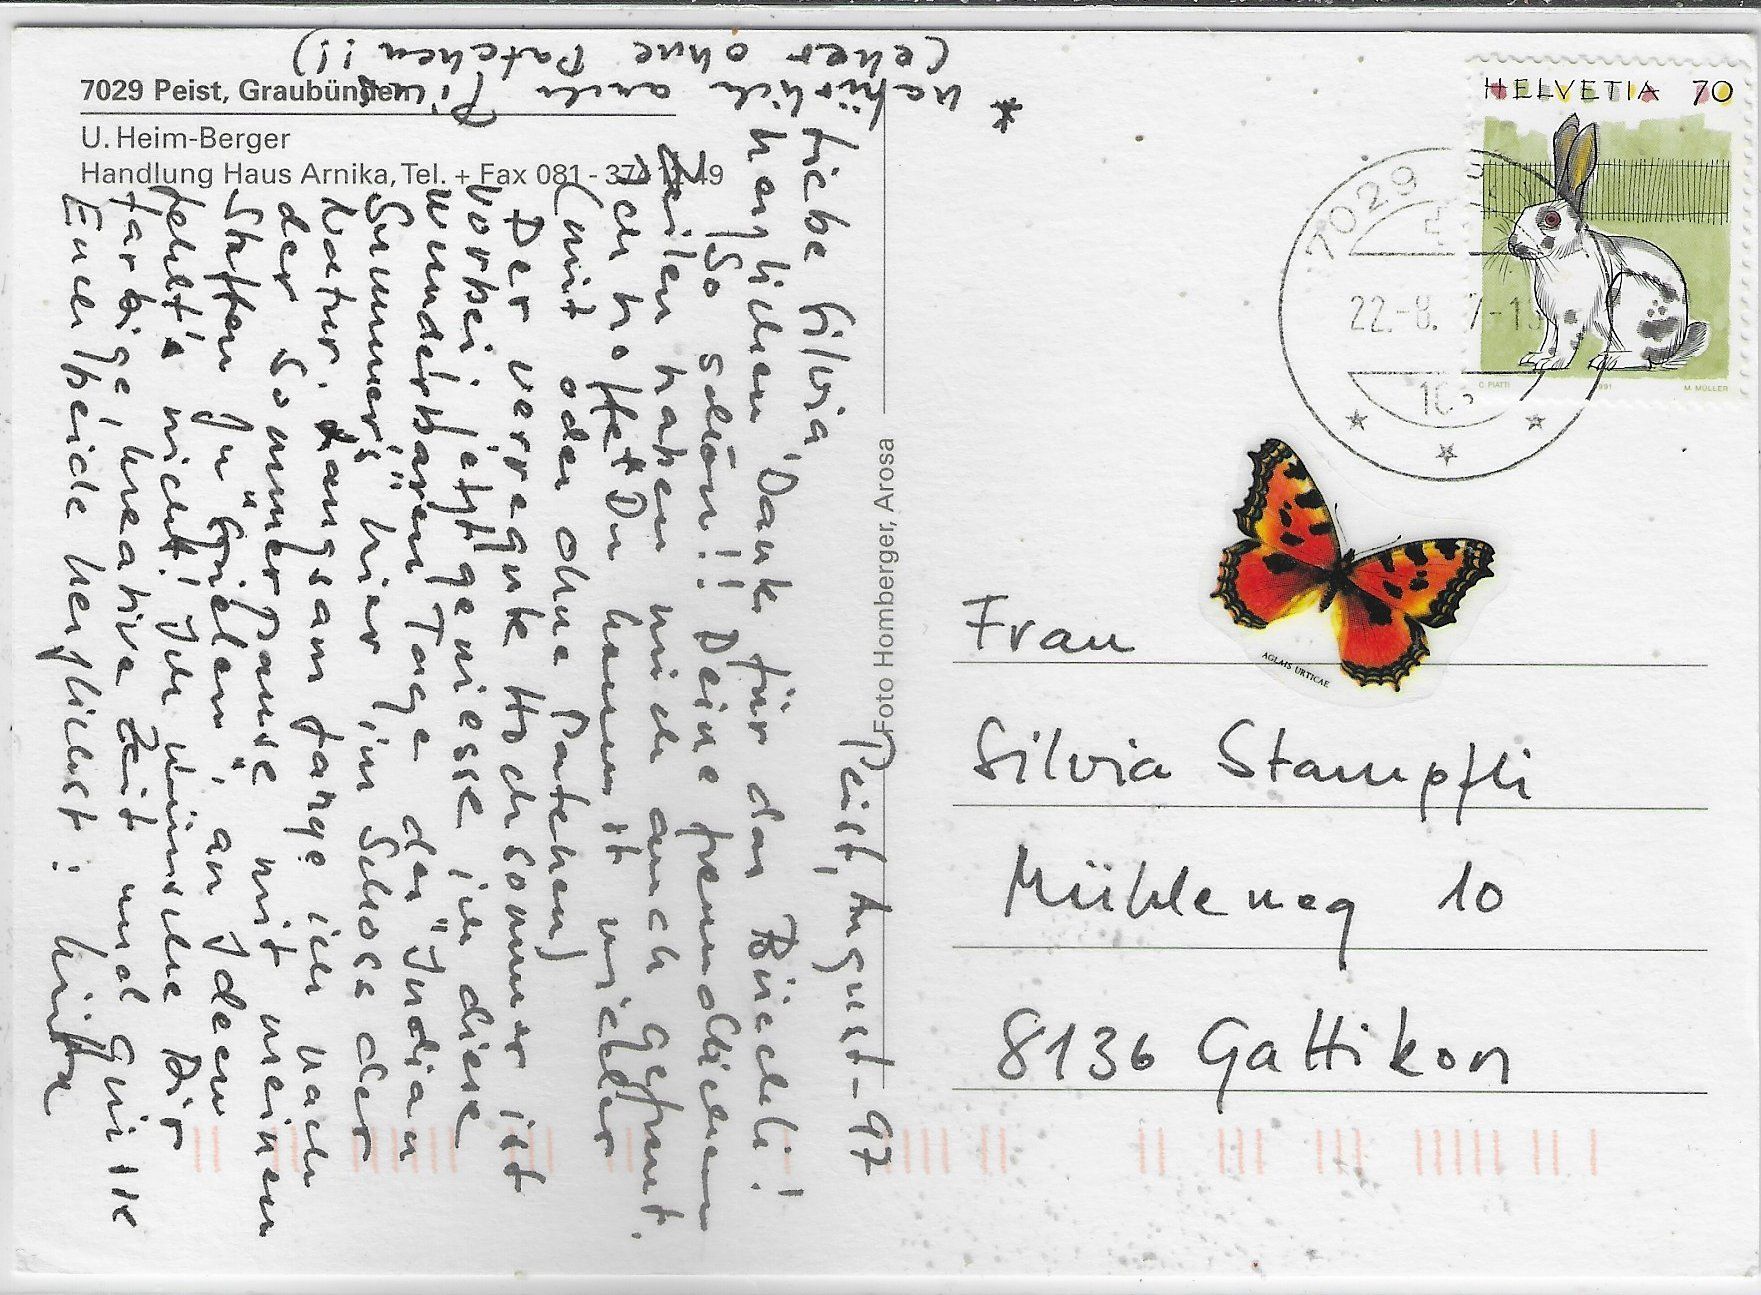 7029 Peist, Graubünden
U. Heim-Berger
Handlung Haus Arnika, Tel. + Fax 081 - 49
Foto Homberger, Arosa
HELVETIA 70
O. PIATTI 1991 M. MÜLLER
7029
22.-8. 7-1
AGLAIS URTICAE
Frau
Silvia Stampfli
Mühleweg 10
8136 Gattikon
Peist, August-97
Liebe Silvia,
herzlichen Dank für das Büechli!
So schön!! Deine freundlichen
Zeilen haben mich auch gefreut.
Ich hoffe Du kommst wieder
(mit oder ohne Patchen)
Der verregnete Hochsommer ist
vorbei, jetzt geniesse ich diese
wunderbaren Tage des "Indian
Summers" hier im Schoss der
Natur. Langsam fange ich nach
der Sommer Pause mit meinen
Stoffen zu "spielen", an Ideen
fehlt's nicht! Ich wünsche Dir
farbige, kreative Zeit und grüsse
Euch beide herzlichst:
* natürlich auch
(eher ohne Patchen!!)